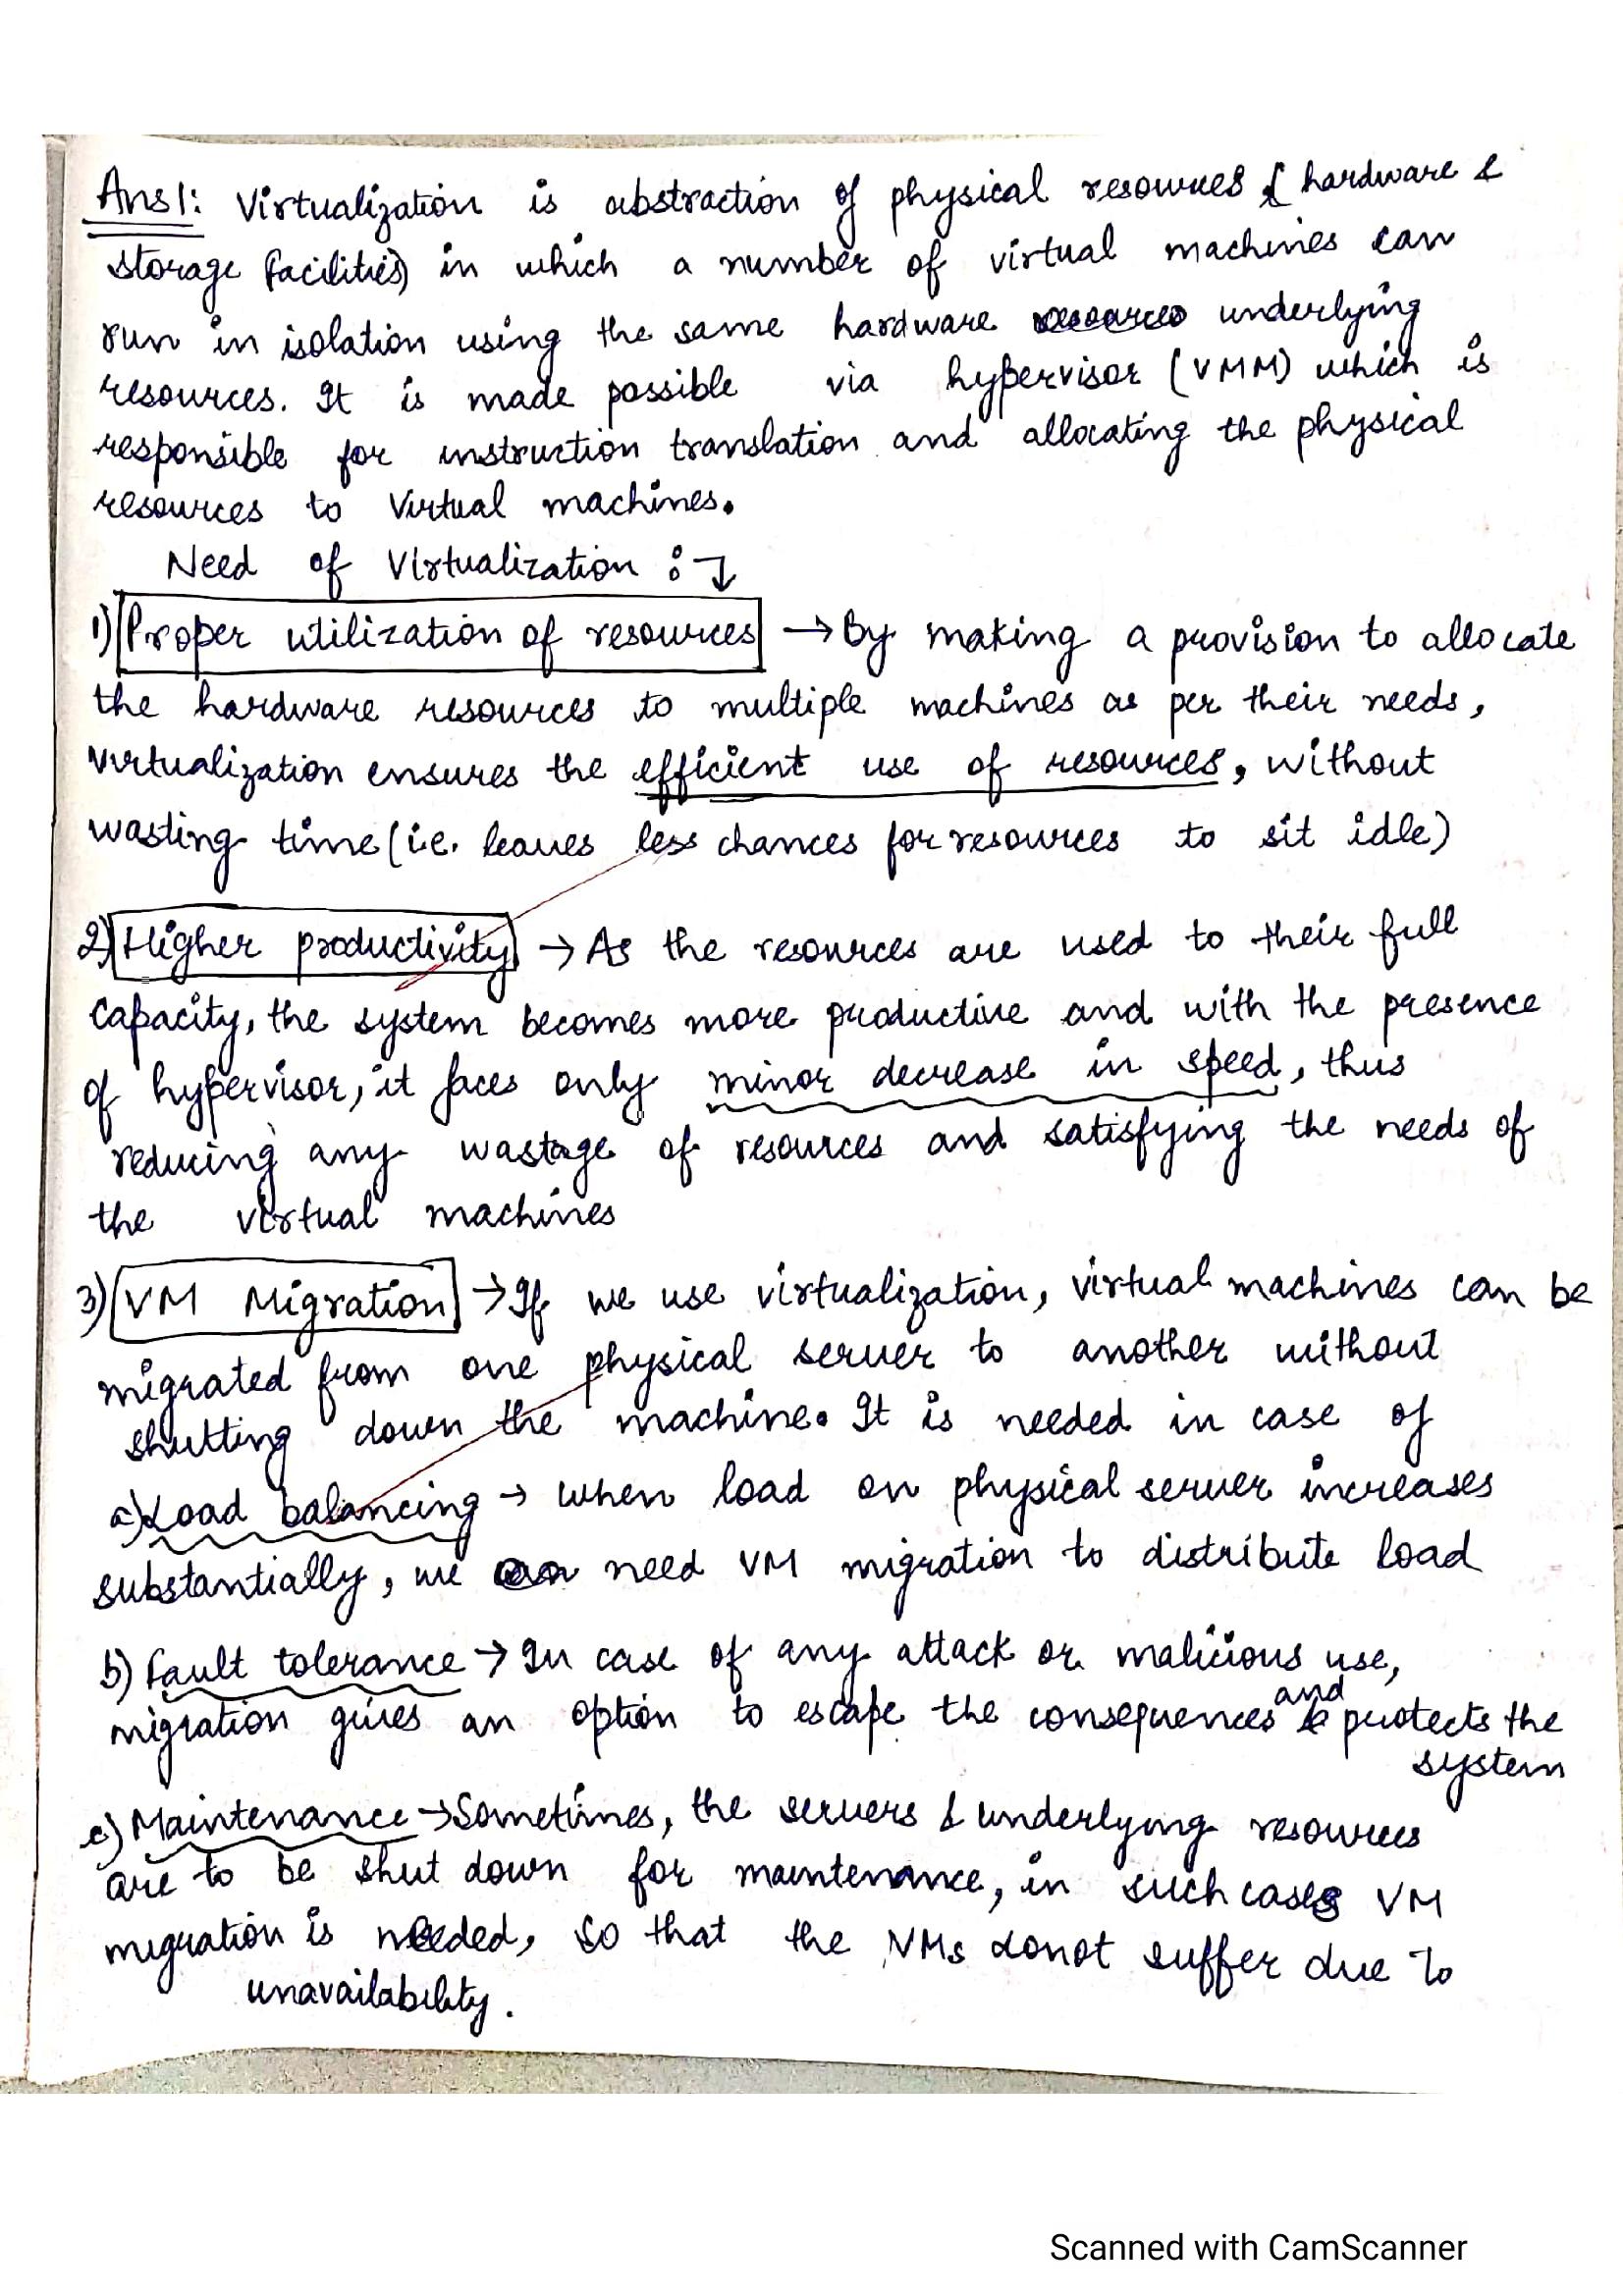 Ans1: Virtualization is abstraction of physical resources ( hardware &
storage facilities) in which a number of virtual machines can
run in isolation using the same hardware underlying
resources. It is made possible via hypervisor (VMM) which is
responsible for instruction translation and allocating the physical
resources to Virtual machines.
Need of Virtualization :↴
1) Proper utilization of resources → By making a provision to allocate
the hardware resources to multiple machines as per their needs,
virtualization ensures the efficient use of resources, without
wasting time (i.e. leaves less chances for resources to sit idle)
2) Higher productivity → As the resources are used to their full
capacity, the system becomes more productive and with the presence
of hypervisor, it faces only minor decrease in speed, thus
reducing any wastage of resources and satisfying the needs of
the virtual machines
3) VM Migration → If we use virtualization, virtual machines can be
migrated from one physical server to another without
shutting down the machine. It is needed in case of
a) Load balancing → when load on physical server increases
substantially, we need VM migration to distribute load
b) Fault tolerance → In case of any attack or malicious use,
migration gives an option to escape the consequences and protects the
system
c) Maintenance → Sometimes, the servers & underlying resources
are to be shut down for maintenance, in such cases VM
migration is needed, so that the VMs donot suffer due to
unavailability.
Scanned with CamScanner